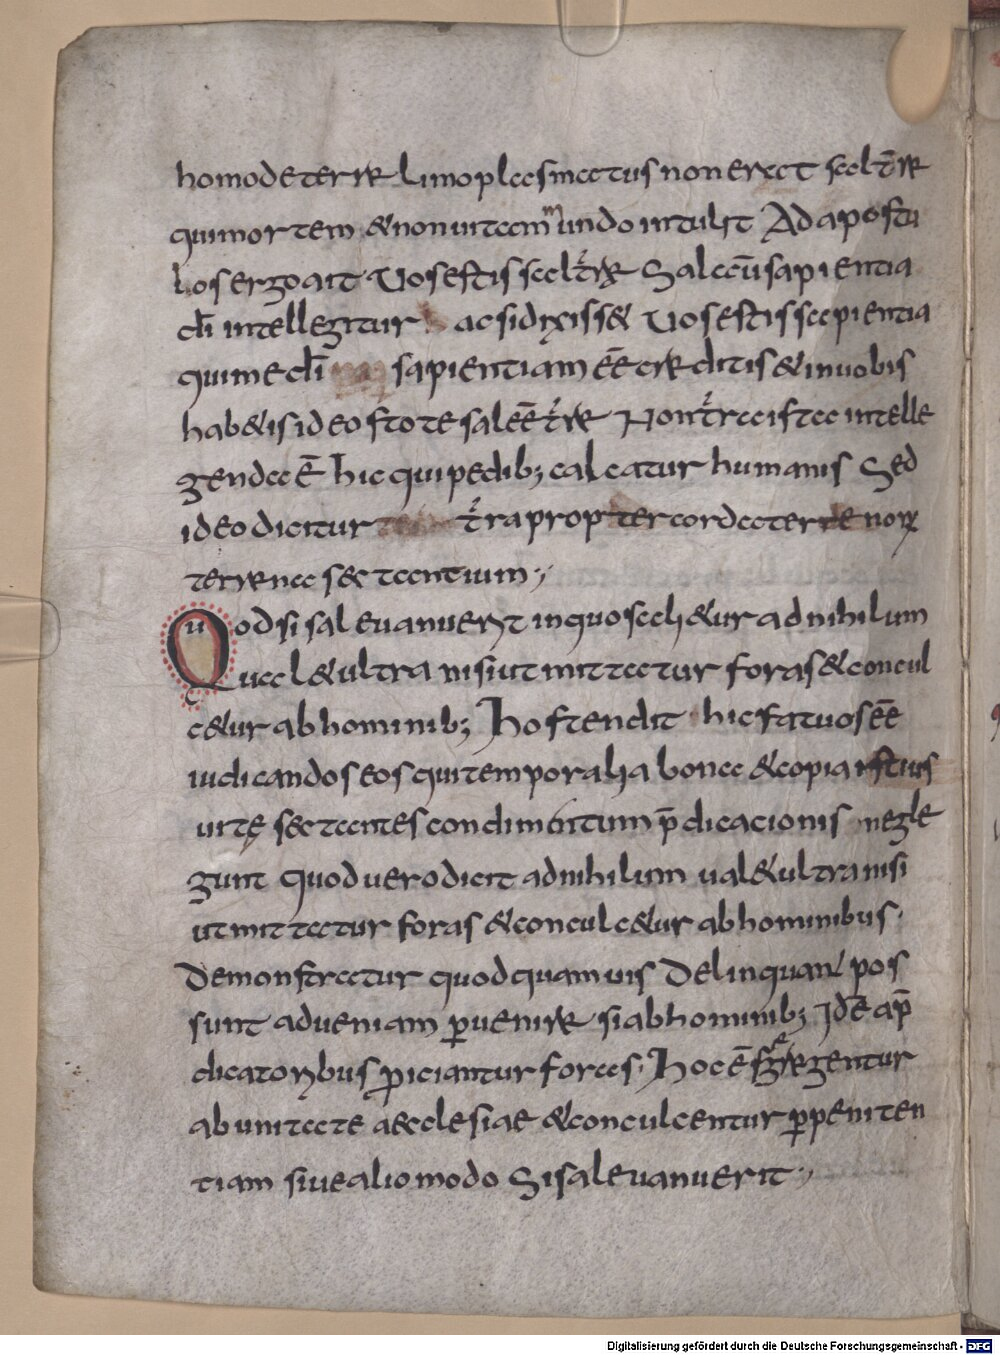 homo de terre limo plasmatus non erat sal tr̄re
qui mortem & non uitam mundo intulit Ad aposto
los ergo ait Uos estis sal tr̄re Sal cū sapientia
dī intellegitur ac si dixiss& Uos estis sapientia
qui me dī sapientiam ēē creditis & in uobis
hab&is ideo stote sal ēē tr̄re Non tr̄ra ista intelle
genda ē hic qui pedib; calcatur humanis Sed
ideo dicitur tr̄ra propter corda terrenorū
terrena sectantium
Quod si sal euanuerit in quo sali&ur ad nihilum
ual& ultra nisi ut mittatur foras & concul
c&ur ab hominib; Hostendit hic fatuos ēē
iudicandos eos qui temporalia bona & copia istius
uitę sectantes condimentum p̄dicacionis negle
gunt quod uero dicit ad nihilum ual& ultra nisi
ut mittatur foras & conculc&ur ab hominibus.
Demonstratur quod quamuis Delinquant pos
sunt ad ueniam ꝑuenire si ab hominib; Idē a p̄
dicatoribus ꝓiciantur foras. Hoc ē segregentur
ab unitate aecclesiae & conculcentur ꝑ peniten
tiam siue alio modo Si sal euanuerit
Digitalisierung gefördert durch die Deutsche Forschungsgemeinschaft - DFG